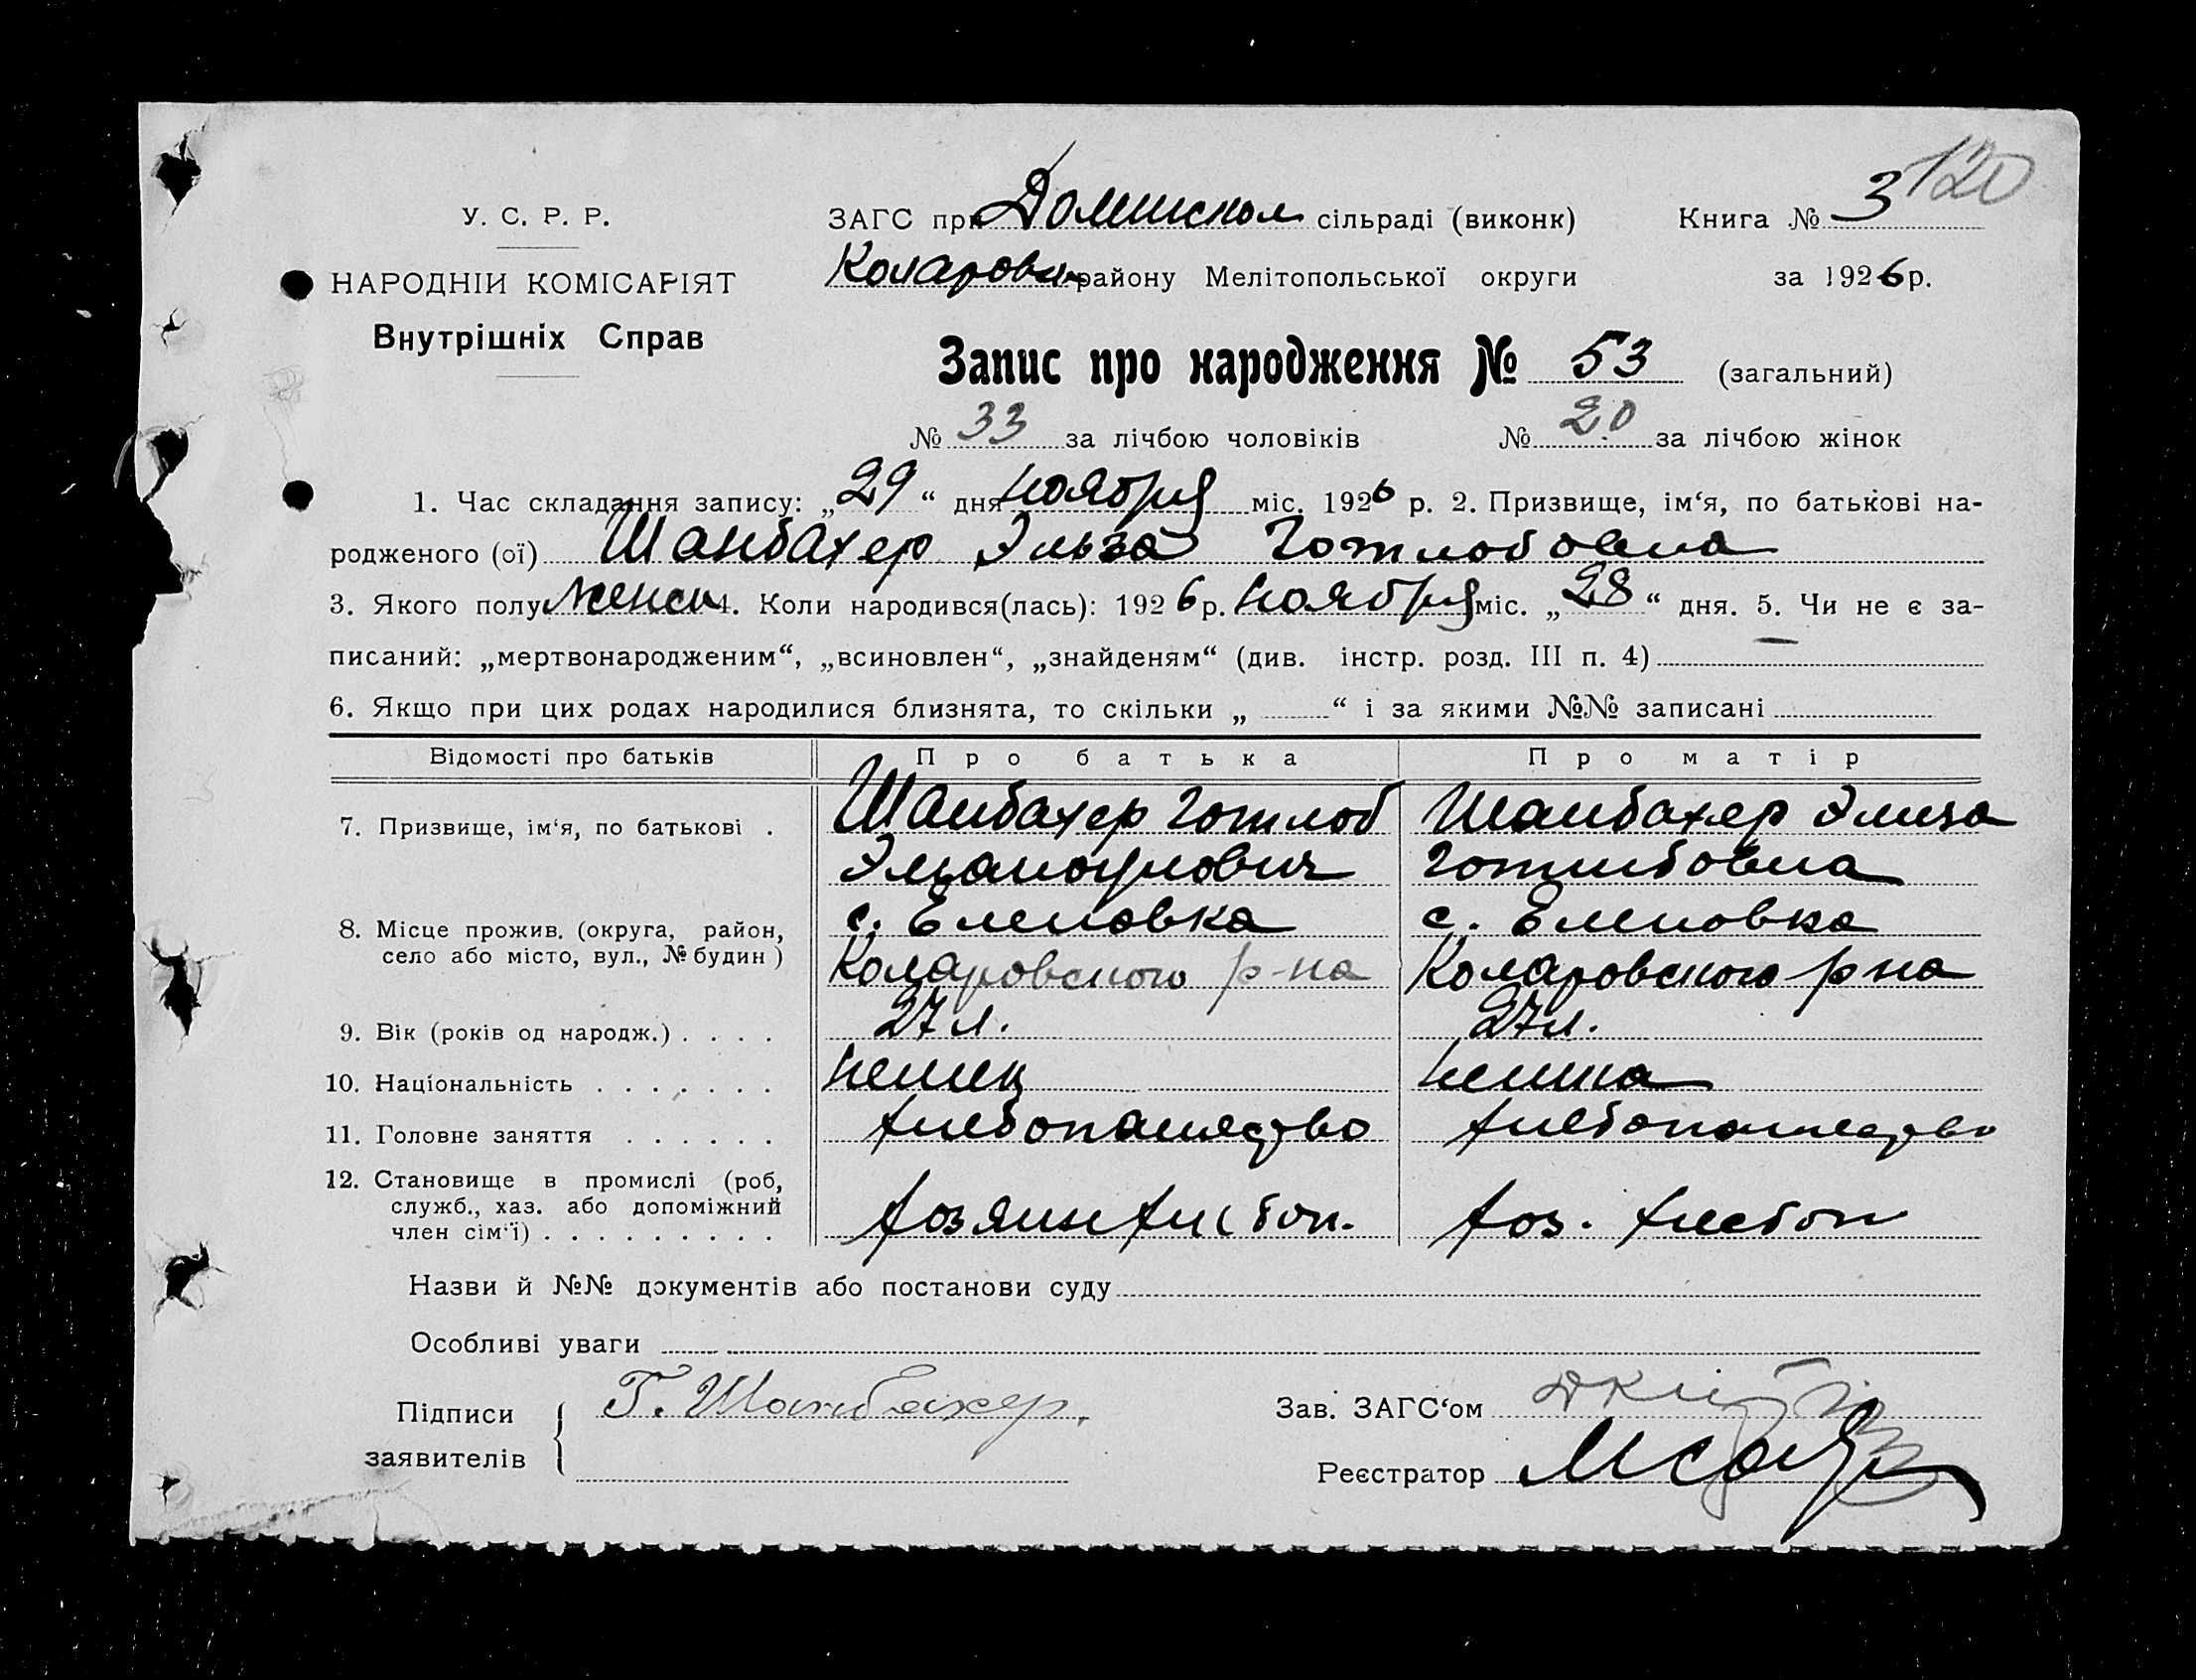 120
У. С. Р. Р.
НАРОДНІЙ КОМІСАРІЯТ
Внутрішніх Справ
ЗАГС при сільраді (виконк) Книга № 3
Коларовск району Мелітопольської округи за 1926 р.
Запис про народження № 53 (загальний)
№ 33 за лічбою чоловіків № 20 за лічбою жінок
1. Час складання запису: „29“ дня ноября міс. 1926 р. 2. Призвище, ім‘я, по батькові на-
родженого (ої) Шанбахер Эльза Готлобовна
3. Якого полу женск 4. Коли народився(лась): 1926 р. ноября міс. „28“ дня. 5. Чи не є за-
писаний: „мертвонародженим“, „всиновлен“, „знайденям“ (див. інстр. розд. III п. 4) —
6. Якщо при цих родах народилися близнята, то скільки „ “ і за якими №№ записані
Відомості про батьків Про батька Про матір
7. Призвище, ім‘я, по батькові . Шанбахер Готлоб Шанбахер Элиза
Готлибовна
8. Місце прожив. (округа, район, с. Еленовка с. Еленовка
село або місто, вул., № будин) Коларовского р-на Коларовского р-на
9. Вік (років од народж.) . . . . 27 л. 27 л.
10. Національність . . . . . . . немец немка
11. Головне заняття . . . . . . хлебопашество хлебопашество
12. Становище в промислі (роб,
служб., хаз. або допоміжний хозяин хлебоп. хоз. хлебоп
член сім‘ї) . . . . . . . . .
Назви й №№ документів або постанови суду
Особливі уваги
Підписи Г. Шанбахер. Зав. ЗАГС‘ом
заявителів
Реєстратор